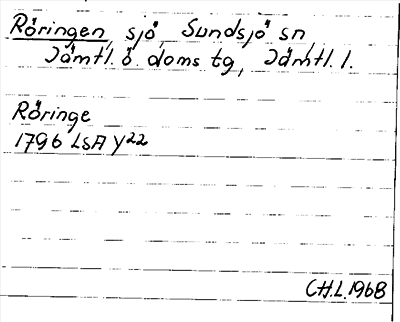 Röringen, sjö, Sundsjö sn,
Jämtl. ö. doms tg, Jämtl. l.
Röringe
1796 LSA Y22
C.H.L. 1968